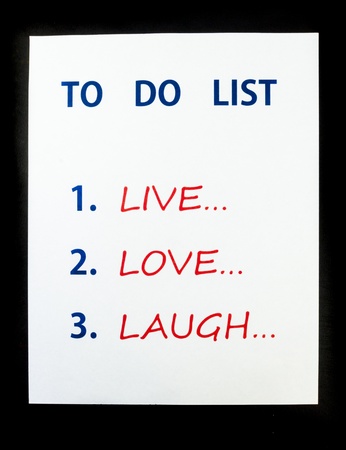 TO DO LIST
1. LIVE...
2. LOVE...
3. LAUGH...